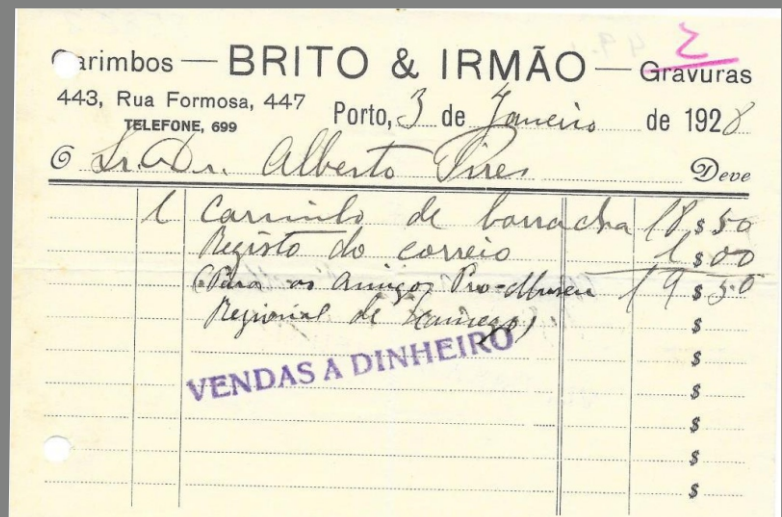 Carimbos — BRITO & IRMÃO — Gravuras
2
443, Rua Formosa, 447
TELEFONE, 699
Porto, 3 de Janeiro de 1928
O Sr. Dr. Alberto Pires Deve
1 Carimbo de borracha 18 $ 50
Registo do correio 1 $ 00
(Para os Amigos Pro-Museu 19 $ 50
Regional de Lamego) $
VENDAS A DINHEIRO
$
$
$
$
$